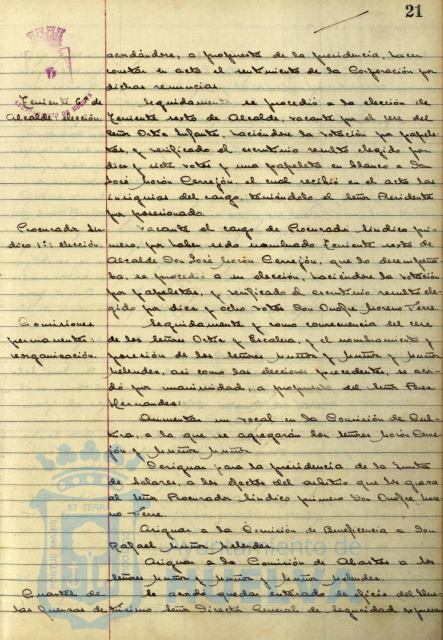 21
acordándose, a propuesta de la presidencia, hacer
constar en acta el sentimiento de la Corporación por
dichas renuncias.
Teniente 6º de
Alcalde. Elección.
Seguidamente se procedió a la elección de
Teniente sexto de Alcalde, vacante por el cese del
señor Ortiz Infante, haciéndose la votación por papele-
tas, y verificado el escrutinio resultó elegido por
diez y siete votos y una papeleta en blanco a Don
José Morón Cerrejón, el cual recibió en el acto las
insignias del cargo, teniéndolo el señor Presidente
por posesionado.
Procurador Sín-
dico 1º: elección.
Vacante el cargo de Procurador Síndico pri-
mero, por haber sido nombrado Teniente sexto de
Alcalde Don José Morón Cerrejón, que lo desempeña-
ba, se procedió a su elección, haciéndose la votación
por papeletas, y verificado el escrutinio resultó ele-
gido por diez y ocho votos Don Onofre Moreno Terre.
Comisiones
permanentes:
reorganización.
Seguidamente y como consecuencia del cese
de los señores Ortiz y Escalera, y el nombramiento y
posesión de los señores Muñoz y Muñoz y Muñoz
Melendes, así como las elecciones precedentes, se acor-
dó por unanimidad, a propuesta del señor Pérez
Hernandes:
Aumentar un vocal en la Comisión de Cul-
tura, a la que se agregarán los señores Morón Cerre-
jón y Muñoz Muñoz
Designar para la presidencia de la Junta
de Solares, a los efectos del arbitrio que los grava
al señor Procurador Síndico primero Don Onofre More-
no Terre.
Asignar a la Comisión de Beneficencia a Don
Rafael Muñoz Melendes.
Asignar a la Comisión de Abastos a los
señores Muñoz y Muñoz y Muñoz Melendes.
Cuartel de
las fuerzas de
Se acordó quedar enterado de oficio del Ilus-
trísimo señor Director General de Seguridad expresa
ET TERRA